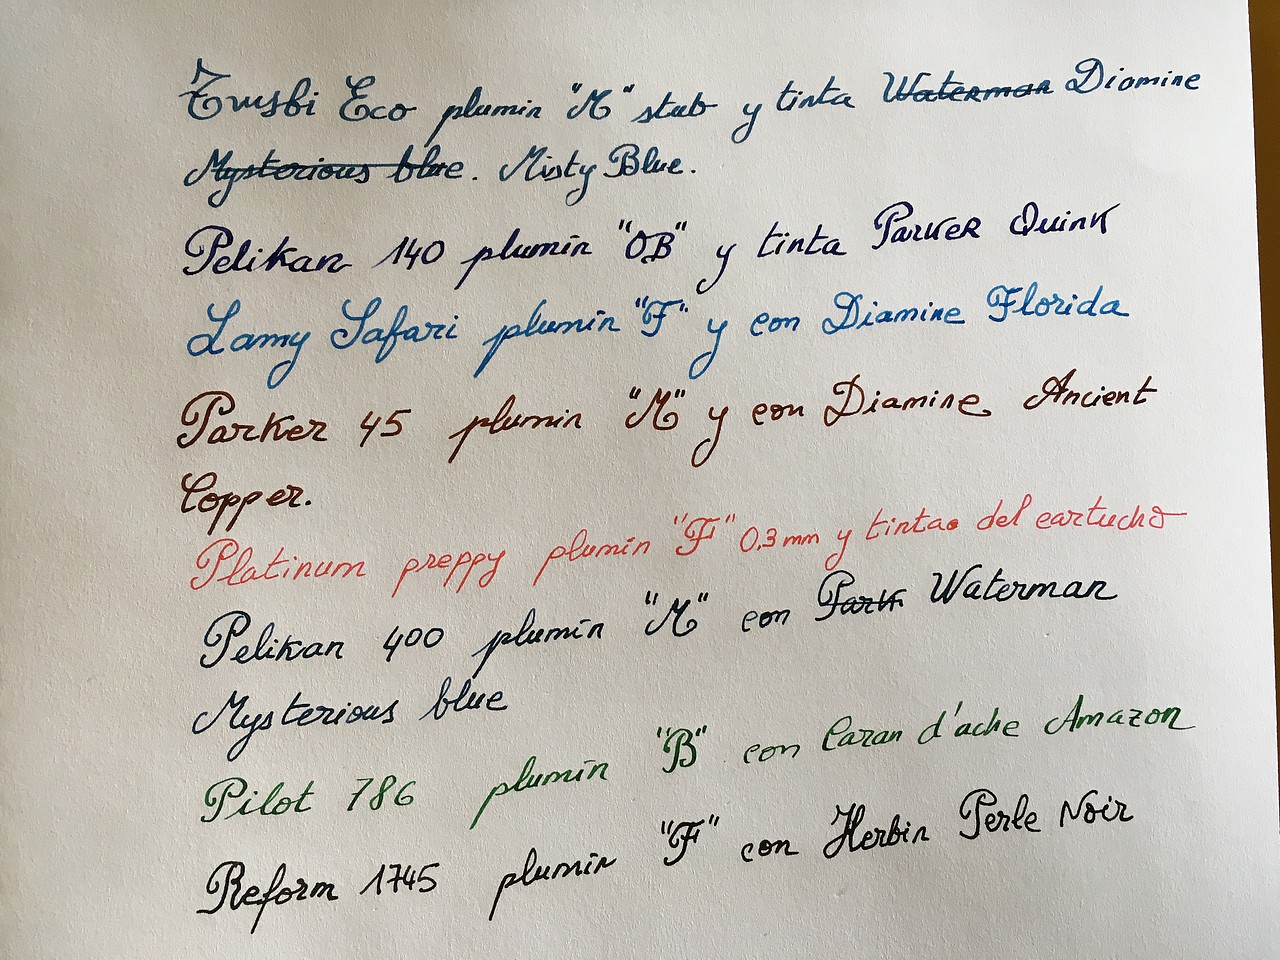 Twsbi Eco plumin "M" stub y tinta Waterman Diamine
Mysterious blue. Misty Blue.
Pelikan 140 plumin "OB" y tinta Parker Quink
Lamy Safari plumin "F" y con Diamine Florida
Parker 45 plumin "M" y con Diamine Ancient
Copper.
Platinum preppy plumin "F" 0,3 mm y tinta del cartucho
Pelikan 400 plumin "M" con Park Waterman
Mysterious blue
Pilot 786 plumin "B" con Caran d'ache Amazon
Reform 1745 plumin "F" con Herbin Perle Noir